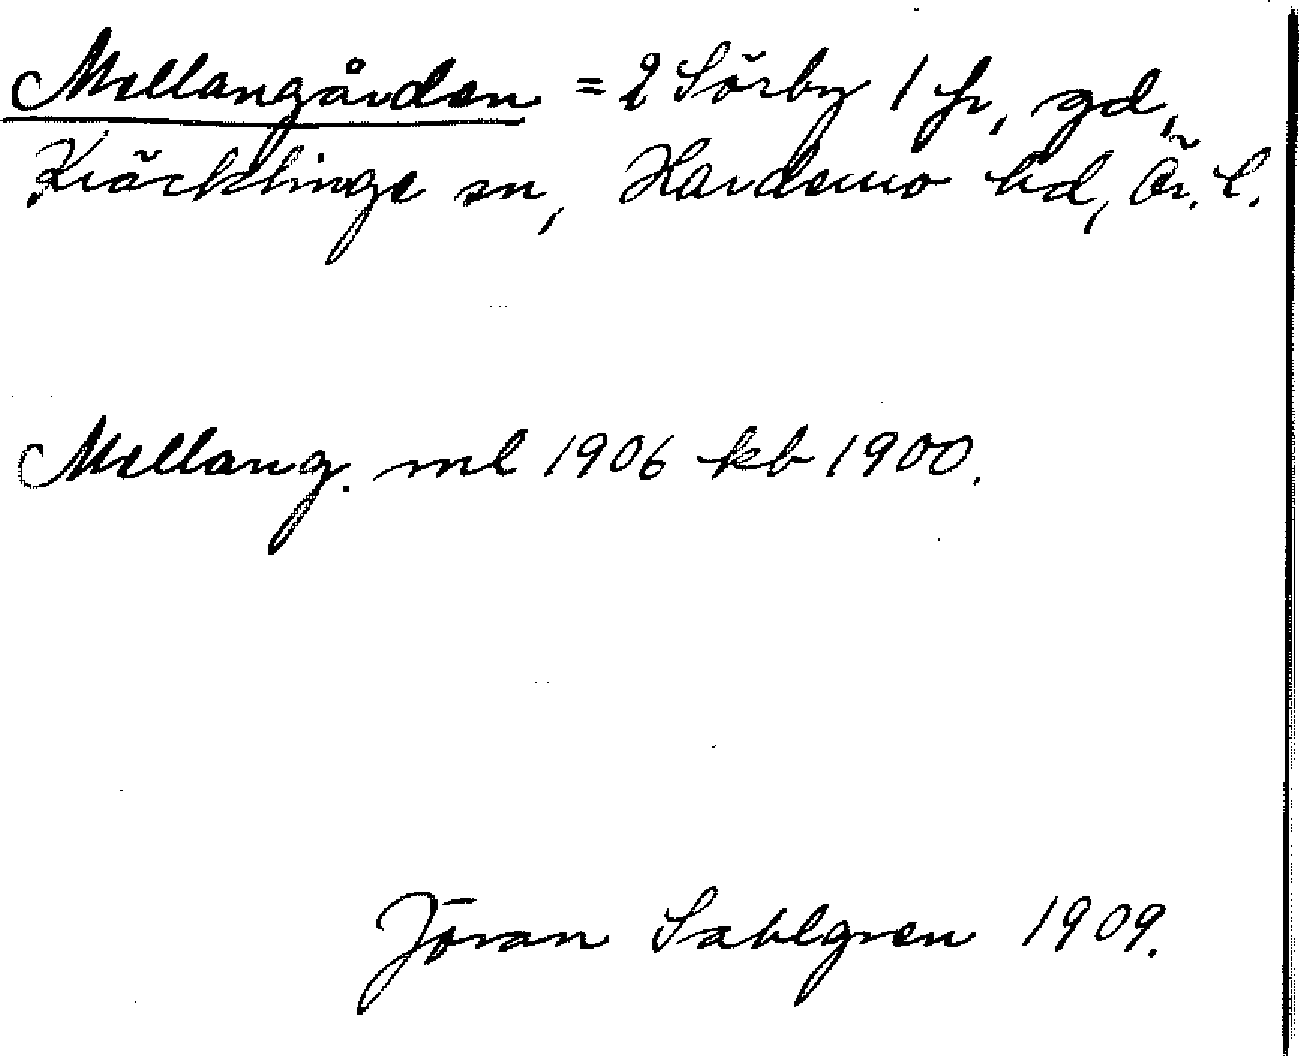 Mellangården = 2 Sörby 1 fr, gd,
Kräcklinge sn, Hardemo hd, Ör. l.
Mellang. ml 1906 kb 1900.
Jöran Sahlgren 1909.